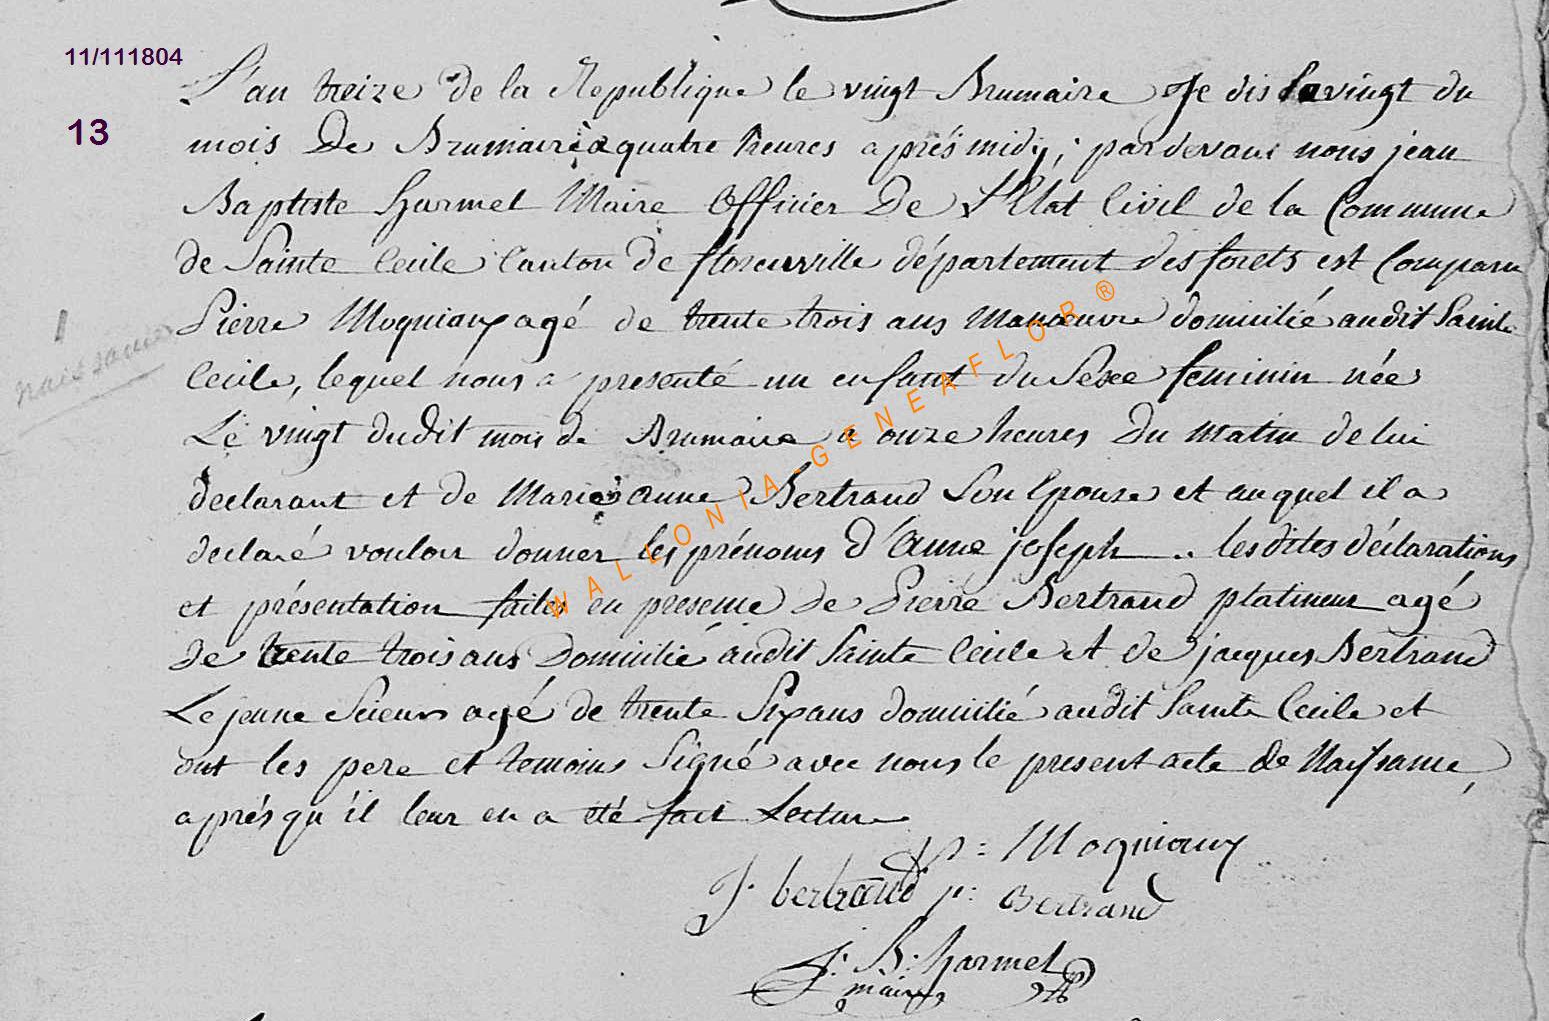 11/111804
13
L'an treize de la Republique le vingt Brumaire Je dis le vingt du
mois De Brumaire à quatre heures aprés midy, pardevant nous jean
Baptiste harmel Maire Officier De L'Etat Civil de la Commune
de Sainte Cecile Canton de florenville département des forets est Comparu
Pierre Moquiaux agé de trente trois ans Manœuvre domicilié audit Sainte
naissance
Cecile, lequel nous a presenté un enfant du Sexe feminin née
Le vingt dudit mois de Brumaire a onze heures Du Matin de lui
declarant et de Marie anne Bertrand Son Epouse et auquel il a
declaré vouloir donner les prénoms d'Anne joseph .. les dites déclarations
et présentation faites en presence de Pierre Bertrand platineur agé
de trente trois ans Domicilié audit Sainte Cecile et de jacques Bertrand
Le jeune Scieur agé de trente Six ans domicilié audit Sainte Cecile et
ont les pere et temoins Signé avec nous le present acte de Naissance,
aprés qu'il leur en a été fait Lecture
p: Moquiaux
J. bertrand p: Bertrand
J: B: harmel
maire
WALLONIA-GENEAFLOR®